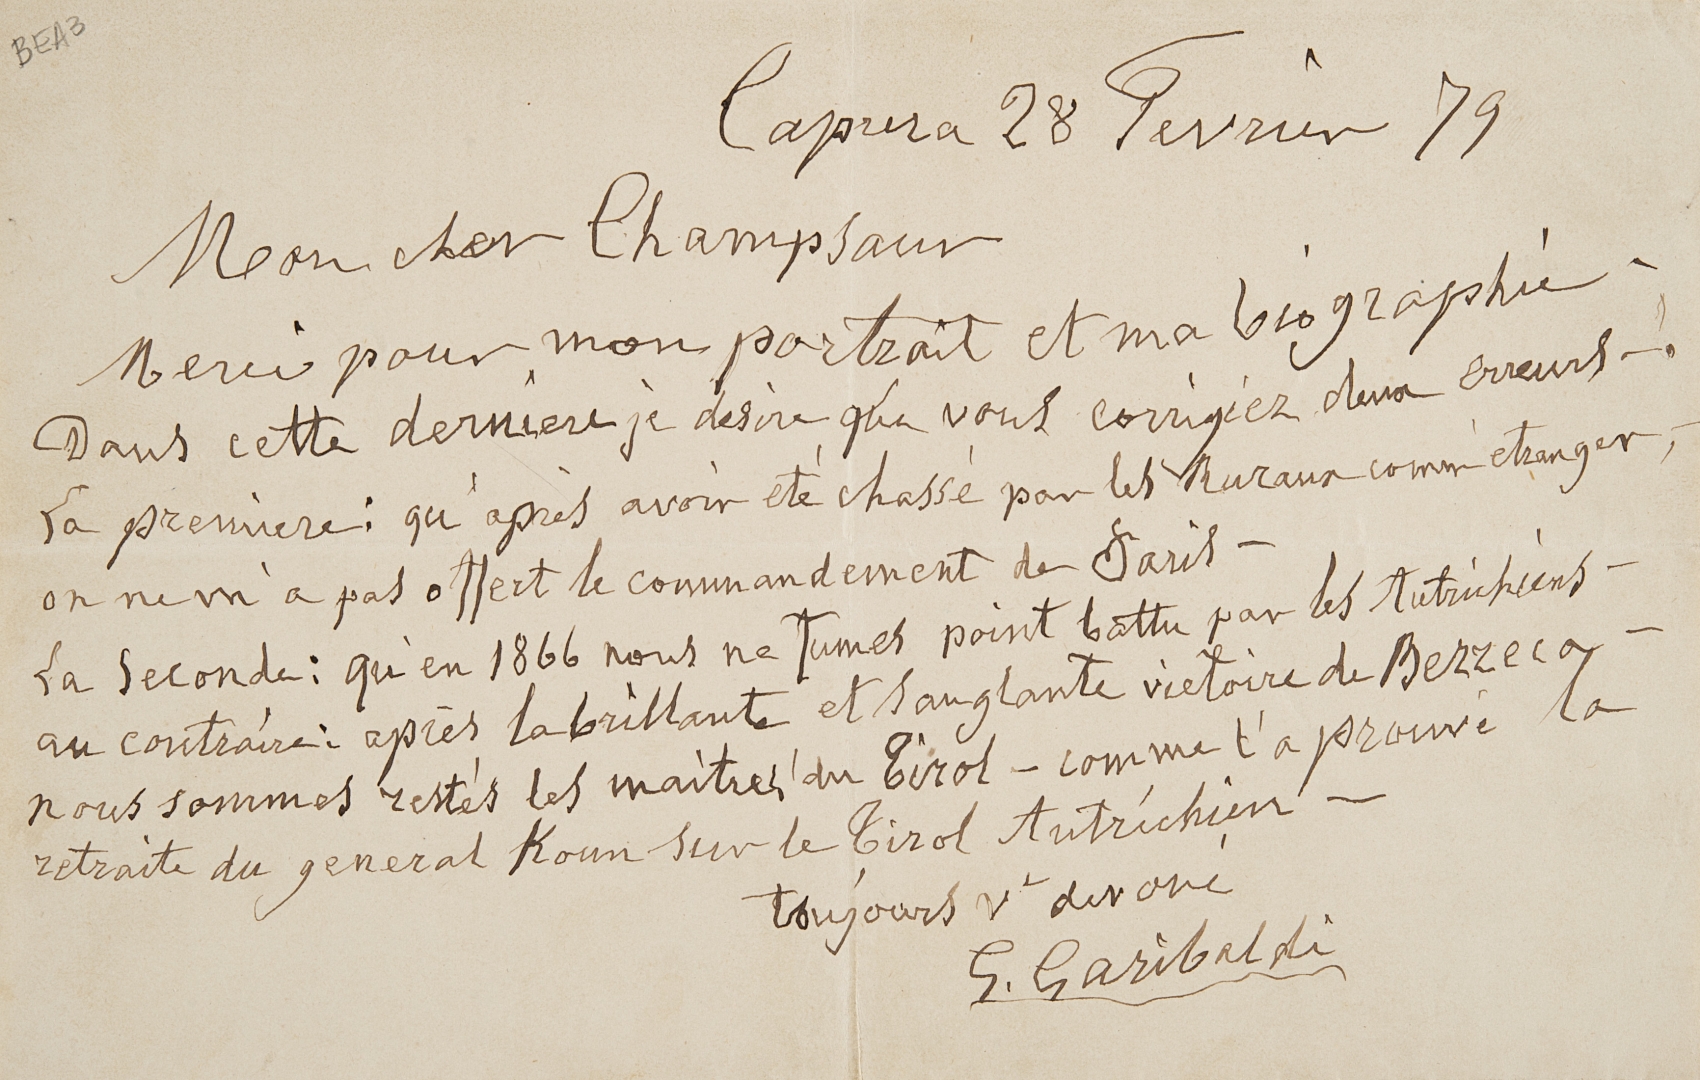 BEA3
Caprera 28 Fevrier 79
Mon cher Champsaur
Merci pour mon portrait et ma biographie -
Dans cette derniere je désire que vous corrigiez deux erreurs -:
La premiere: qu'après avoir été chassé par les Ruraux comm' etranger, -
on ne m'a pas offert le commandement de Paris -
La seconde: qu'en 1866 nous ne fumes point battu par les Autrichiens -
au contraire: après la brillante et sanglante victoire de Bezzeca -
nous sommes restés les maîtres du Tirol - comme l'a prouvé la
retraite du general Koun sur le Tirol Autrichien -
toujours vt devoué
G. Garibaldi